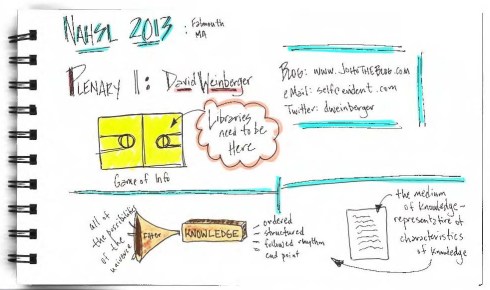 NAHSL 2013 : Falmouth
MA
PLENARY II: David Weinberger
Blog: www.JohoTheBlog.com
eMail: self@evident.com
Twitter: dweinberger
Libraries
need to be
Here
Game of Info
all of
the possibility
of the
universe
Filter
KNOWLEDGE
ordered
structured
followed rhythm
end point
the medium
of knowledge -
representative of
characteristics
of knowledge